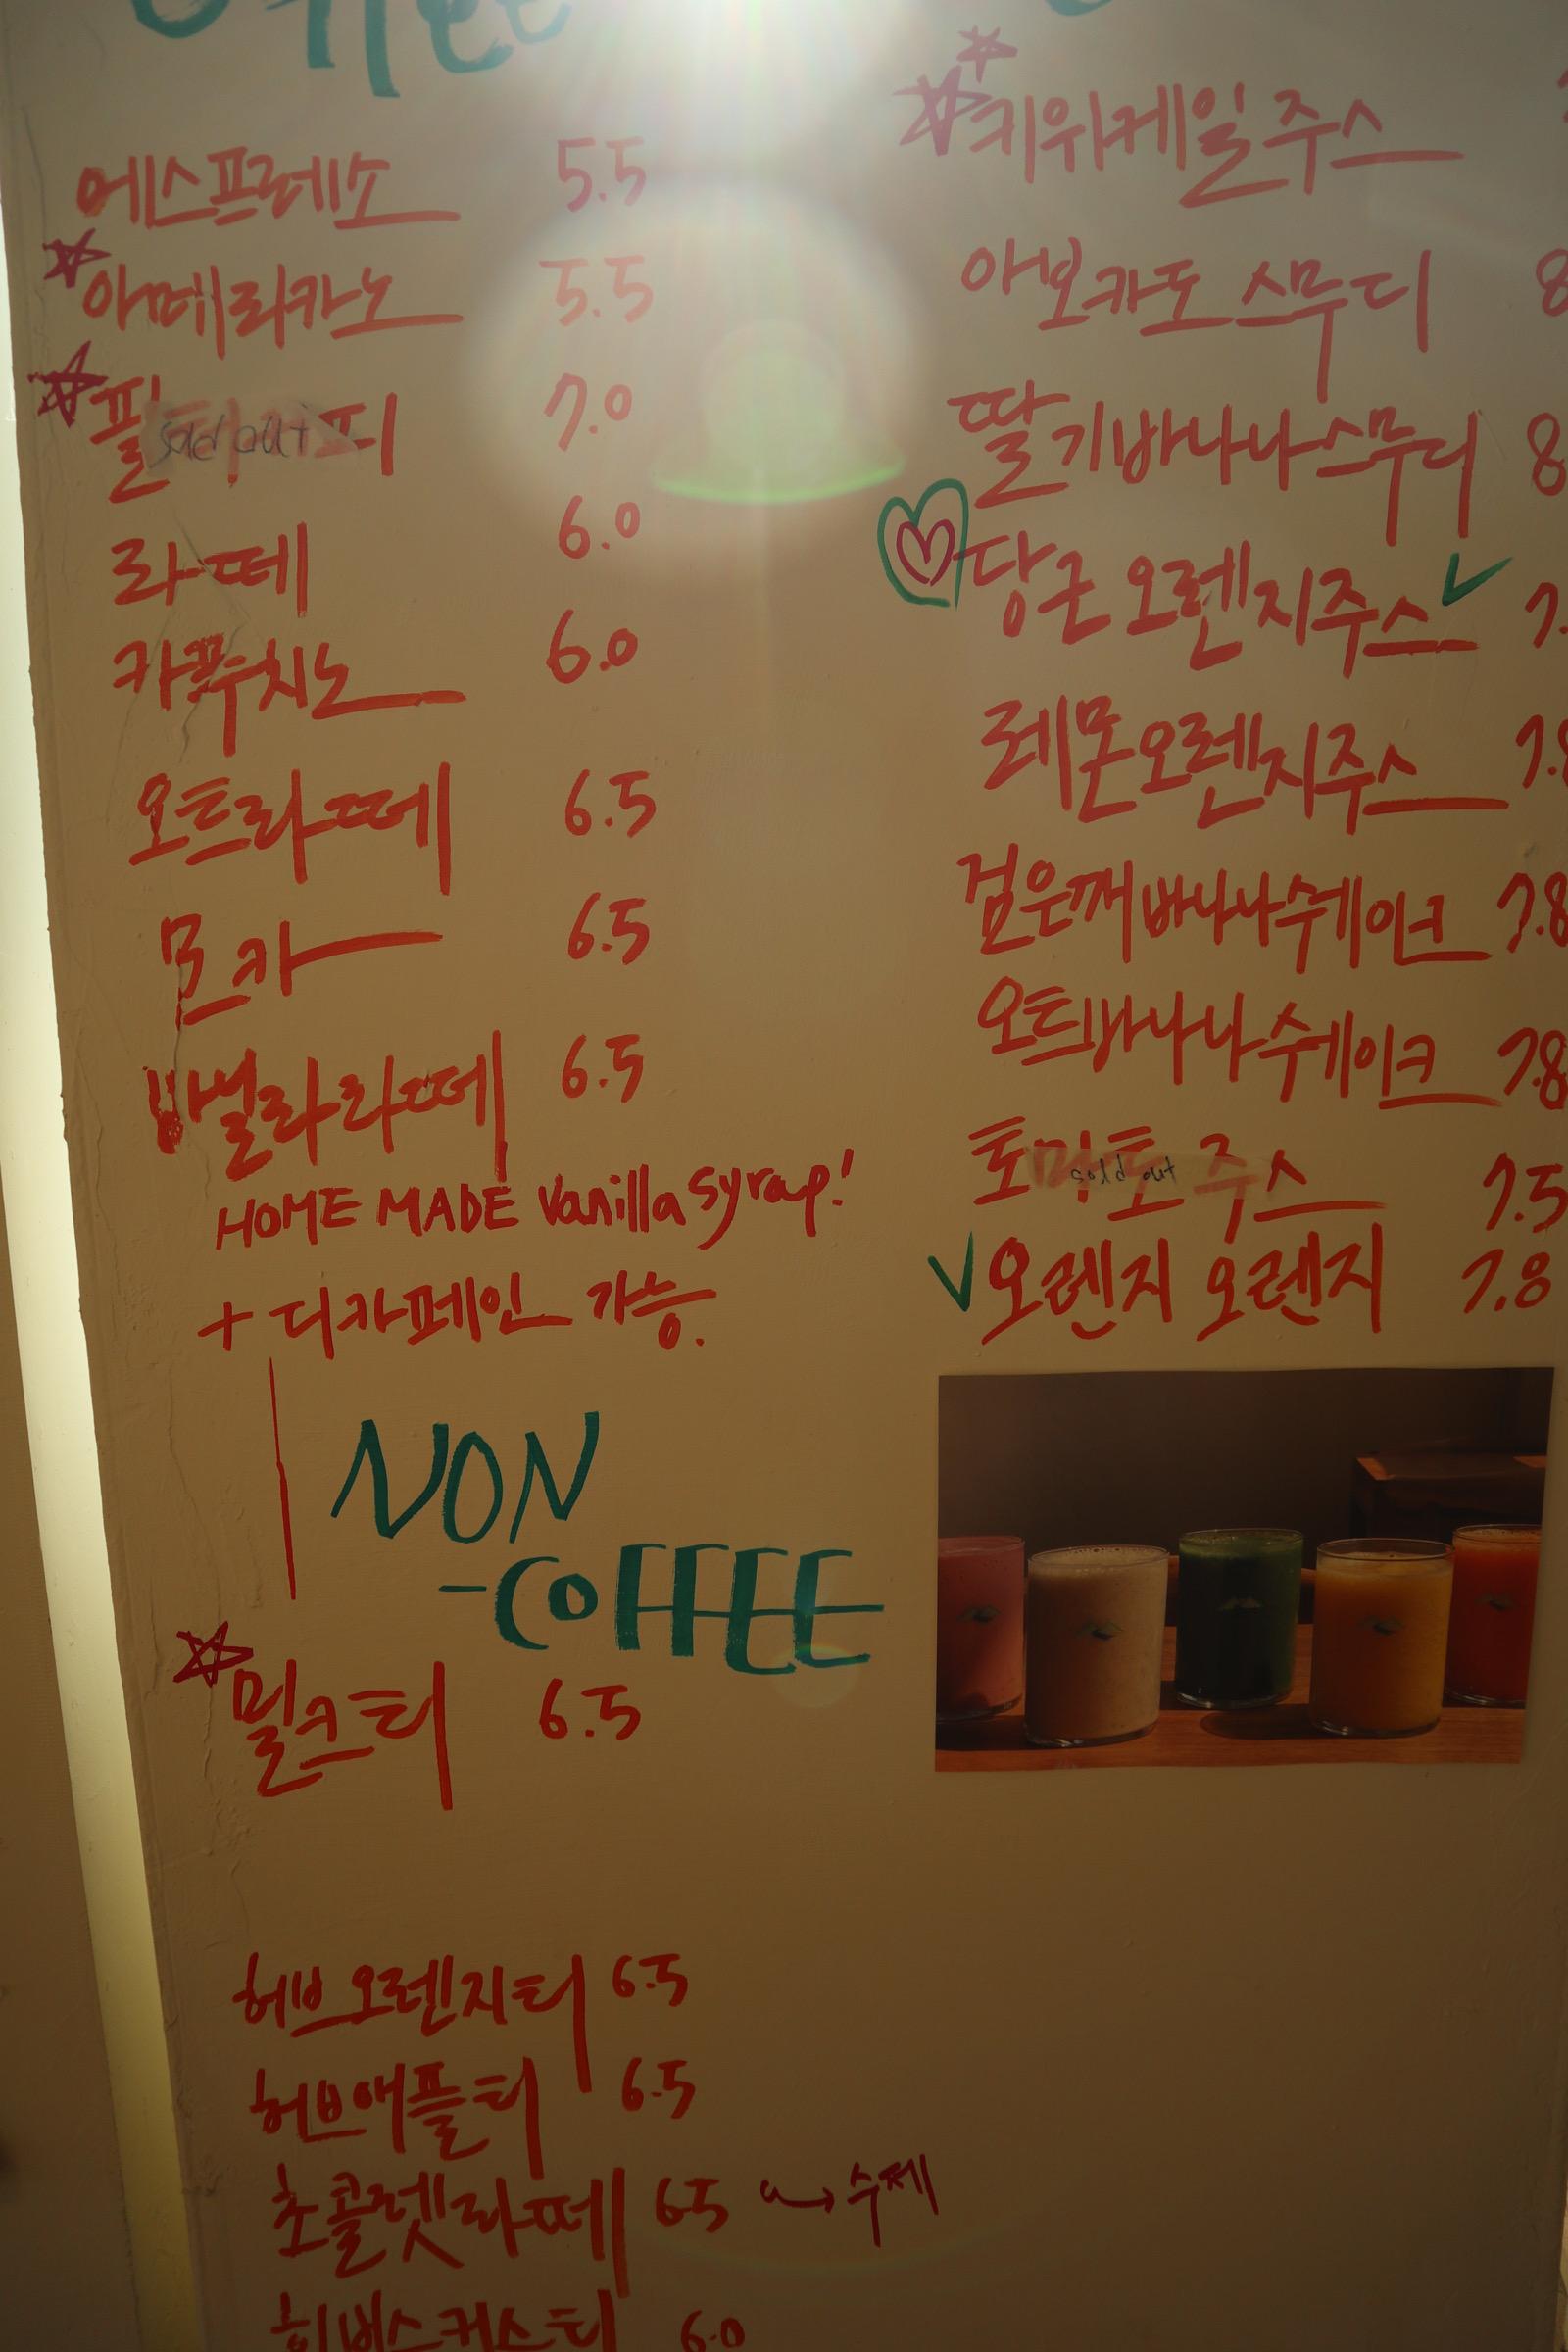 Coffee
에스프레소 5.5
아메리카노 5.5
필 sold out 피 7.0
라떼 6.0
카푸치노 6.0
오트라떼 6.5
모카 6.5
바닐라라떼 6.5
HOME MADE Vanilla syrap!
+ 디카페인 가능.
NON
-COFFEE
밀크티 6.5
허브오렌지티 6.5
허브애플티 6.5
초콜렛라떼 65 → 수제
히비스커스티 6.0
키위케일주스
아보카도 스무디 8
딸기바나나스무디 8
당근 오렌지주스 7.
레몬오렌지주스 7.8
검은깨바나나쉐이크 7.8
오트바나나쉐이크 7.8
토마토주스 sold out 7.5
오렌지 오렌지 7.8